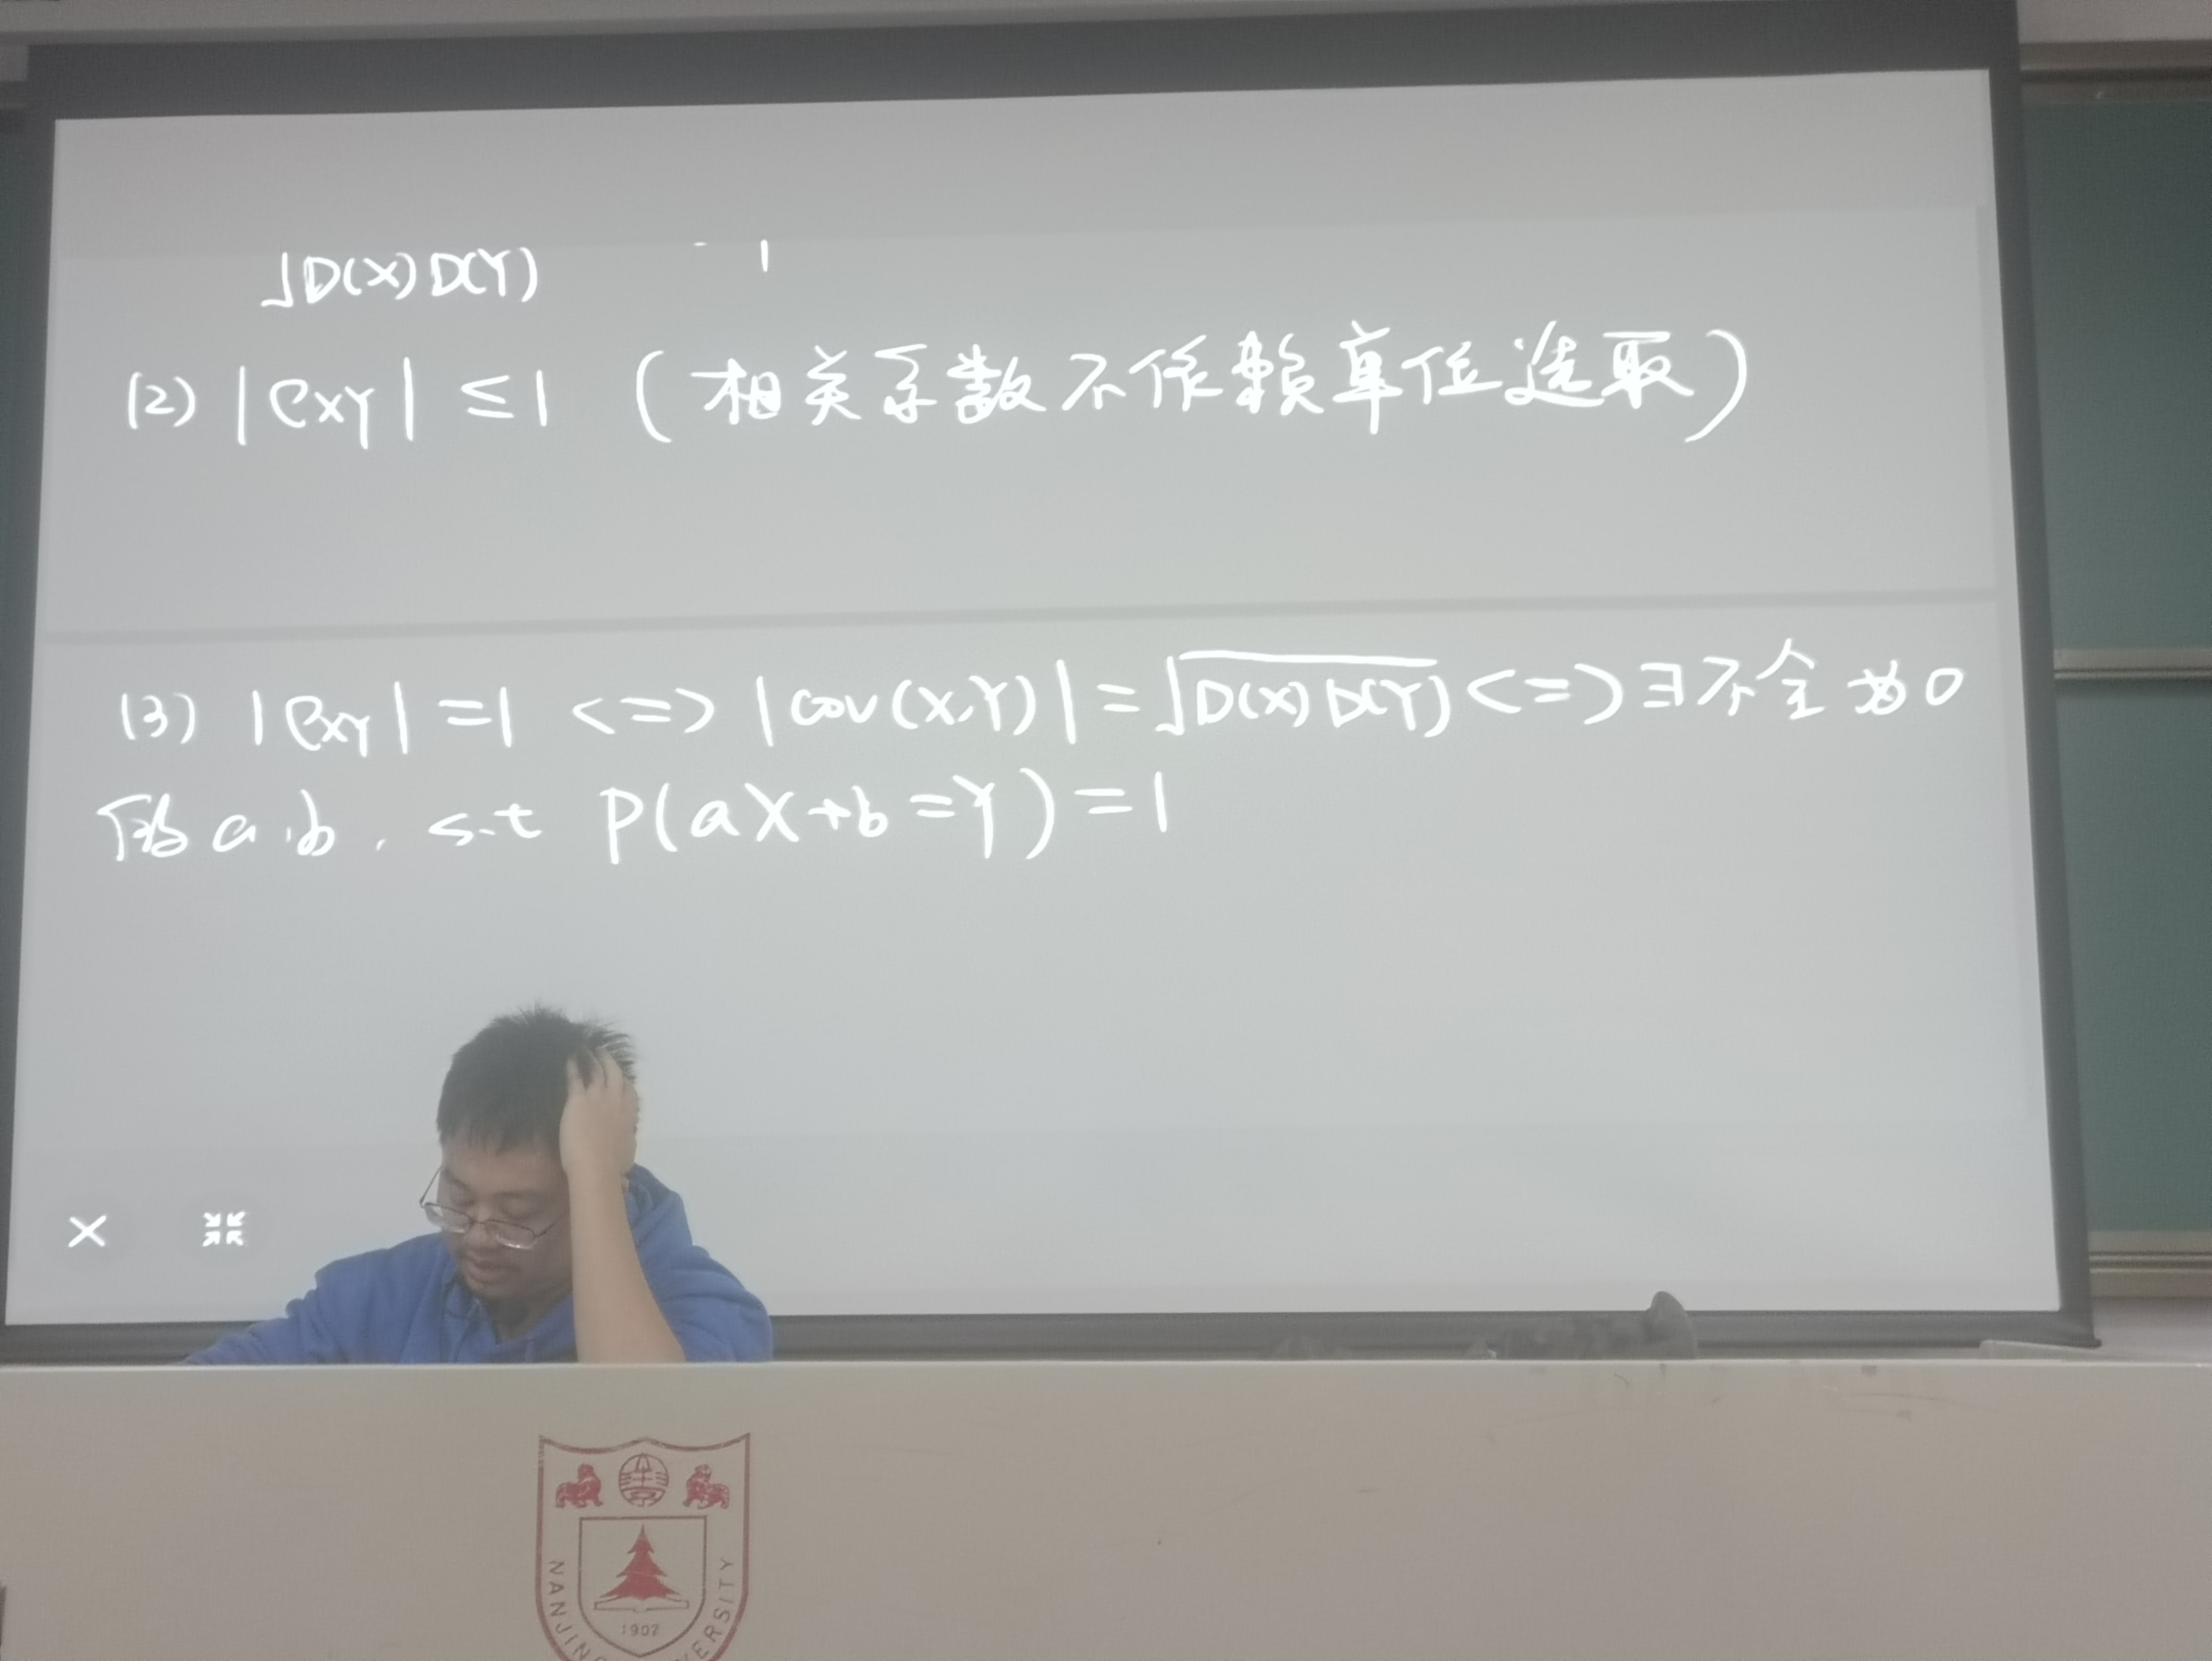 √D(X)D(Y)
(2) |ρxy| ≤1 (相关系数不依赖单位选取)
(3) |ρxy| =1 <=> |cov(X,Y)| =√D(X)D(Y) <=> ∃不全为0
的a,b, s.t P(aX+b=Y)=1
1902
NANJING UNIVERSITY